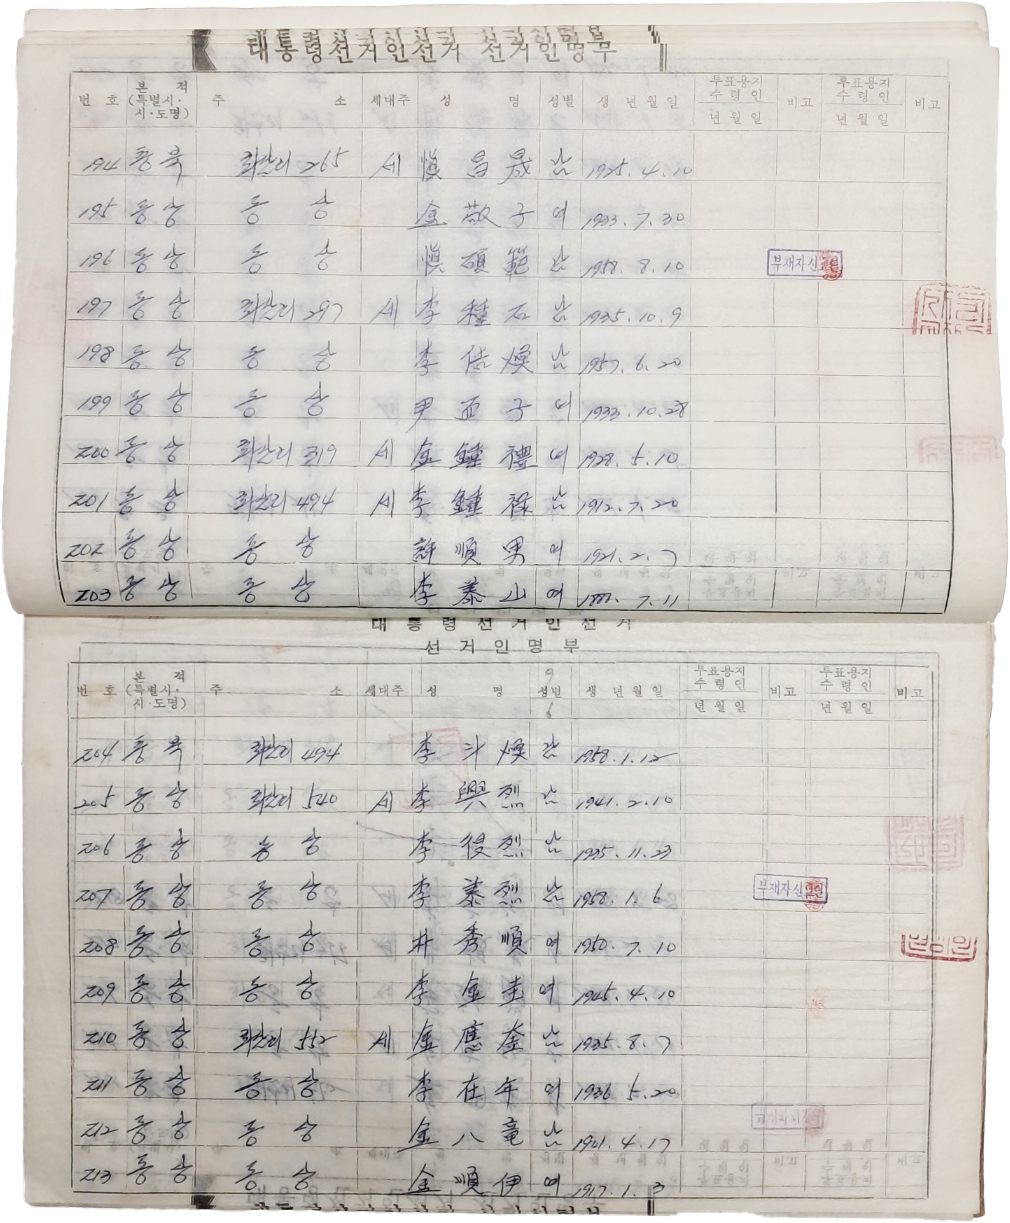 대통령선거인선거 선거인명부
번호 본적 (특별시·시·도명) 주소 세대주 성명 성별 생년월일 투표용지 수령인 년월일 비고 투표용지 수령인 년월일 비고
194 충북 265 세 愼昌晟 남 1935.4.10
195 동상 동상 金敬子 여 1933.7.30
196 동상 동상 愼碩範 남 1958.8.10 부재자신고
197 동상 297 세 李種石 남 1935.10.9
198 동상 동상 李佶煥 남 1957.6.20
199 동상 동상 尹孟子 여 1933.10.28
200 동상 319 세 金鍾禮 여 1928.5.10
201 동상 494 세 李鍾祿 남 1912.7.20
202 동상 동상 許順男 여 1921.2.7
203 동상 동상 李泰山 여 7.11
대통령선거인선거
선거인명부
번호 본적 (특별시·시·도명) 주소 세대주 성명 성별 생년월일 투표용지 수령인 년월일 비고 투표용지 수령인 년월일 비고
204 충북 494 李斗煥 남 1958.1.12
205 동상 540 세 李興烈 남 1941.2.10
206 동상 동상 李俊烈 남 1935.11.23
207 동상 동상 李泰烈 남 1958.1.6 부재자신고
208 동상 동상 朴秀順 여 1950.7.10
209 동상 동상 李金圭 여 1945.4.10
210 동상 552 세 金應奎 남 1935.8.7
211 동상 동상 李在年 여 1936.5.20
212 동상 동상 金八童 남 1901.4.17
213 동상 동상 金順伊 여 1917.1.3